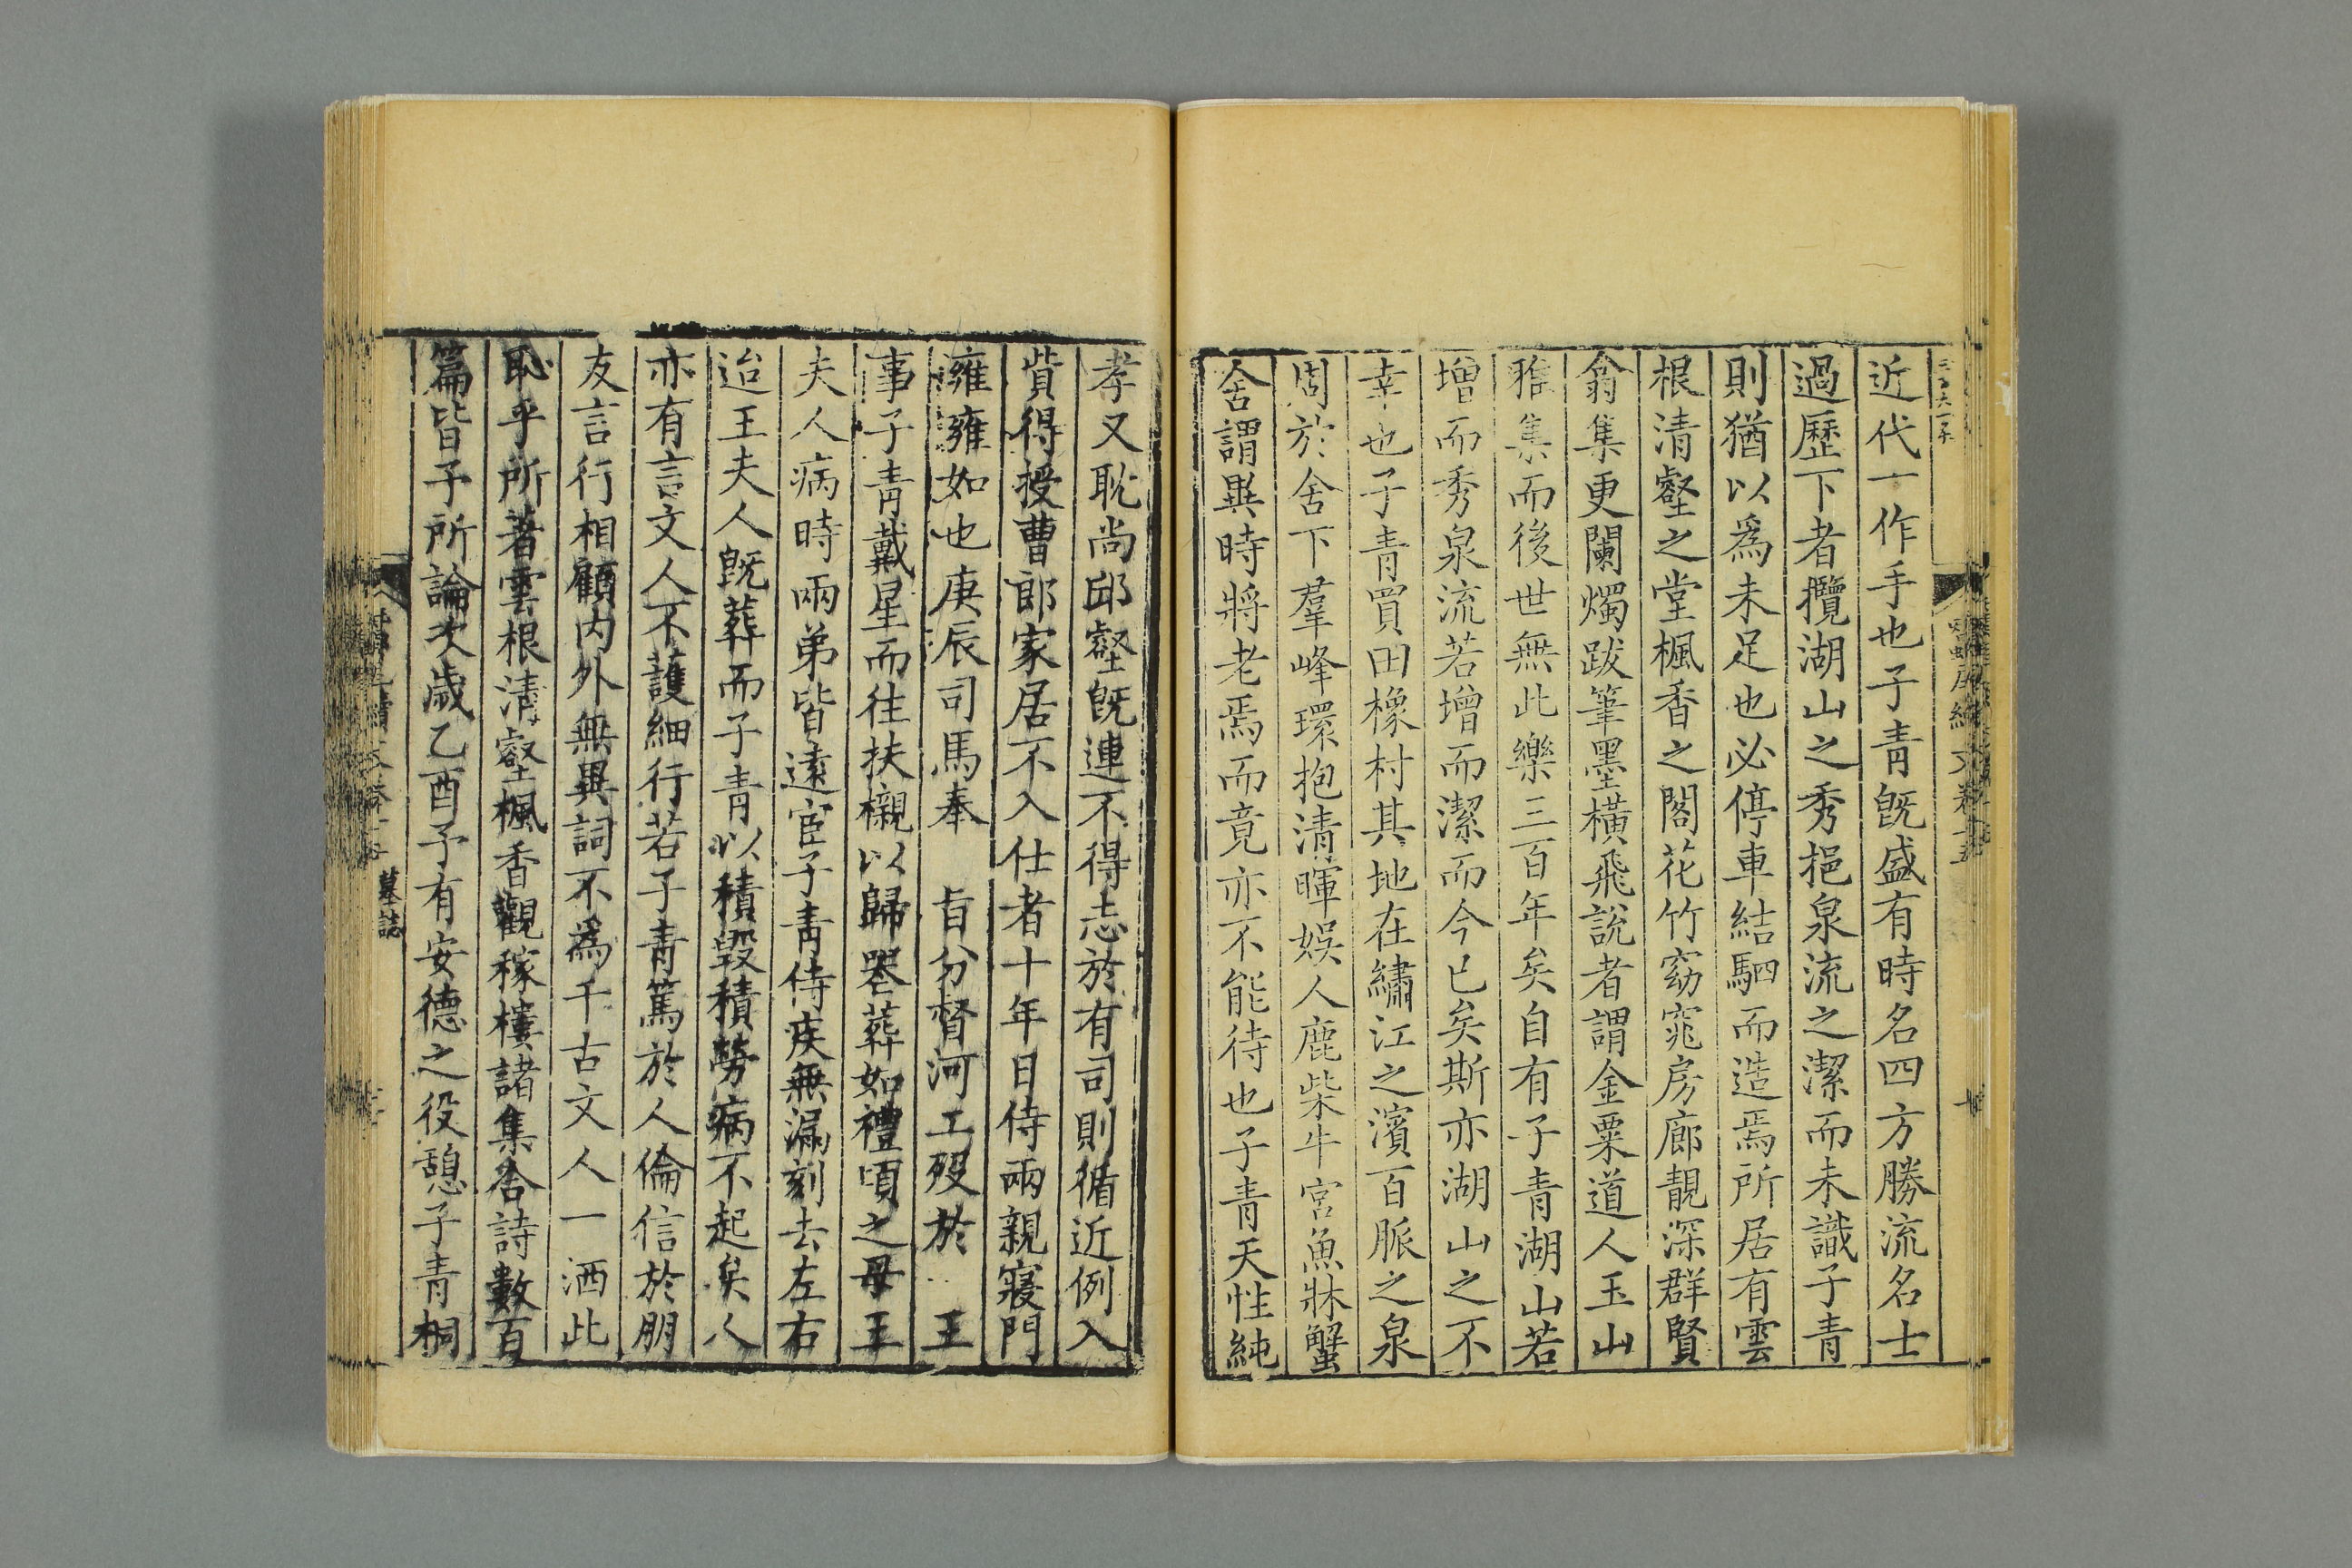 近代一作手也子青旣盛有時名四方勝流名士
過歷下者攬湖山之秀挹泉流之潔而未識子青
則猶以爲未足也必停車結駟而造焉所居有雲
根清壑之堂楓香之閣花竹窈窕房廊靚深群賢
翕集更闌燭跋筆墨橫飛說者謂金粟道人玉山
雅集而後世無此樂三百年矣自有子青湖山若
增而秀泉流若增而潔而今已矣斯亦湖山之不
幸也子青買田橡村其地在繡江之濱百脈之泉
周於舍下羣峰環抱清暉娛人鹿柴牛宮魚牀蟹
舍謂異時將老焉而竟亦不能待也子青天性純
孝又耽尚邱壑旣連不得志於有司則循近例入
貲得授曹郎家居不入仕者十年日侍兩親寢門
雍雍如也庚辰司馬奉 旨分督河工歿於 王
事子青戴星而往扶櫬以歸營葬如禮頃之母王
夫人病時兩弟皆遠宦子青侍疾無漏刻去左右
迨王夫人旣葬而子青以積毀積勞病不起矣人
亦有言文人不護細行若子青篤於人倫信於朋
友言行相顧內外無異詞不爲千古文人一洒此
恥乎所著雲根清壑楓香觀稼樓諸集各詩數百
篇皆子所論次歲乙酉予有安德之役憩子青桐
墓誌